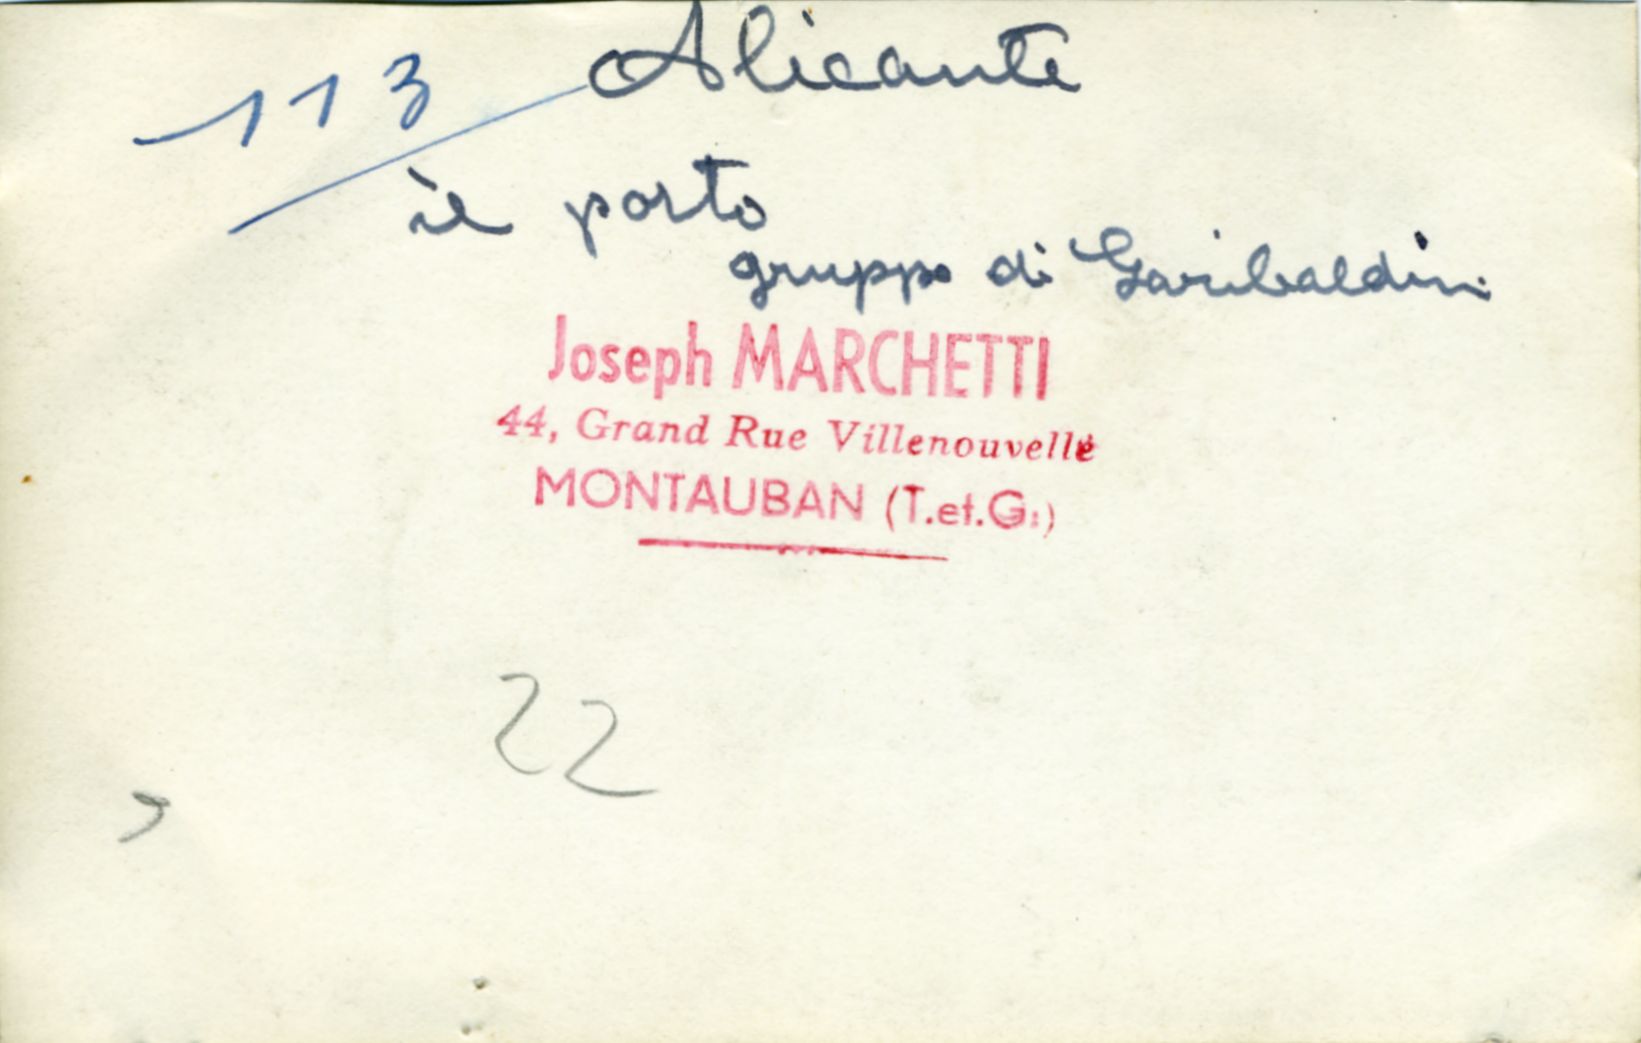 113
Alicante
il porto
gruppo di Garibaldini
Joseph MARCHETTI
44, Grand Rue Villenouvelle
MONTAUBAN (T.et.G.)
22